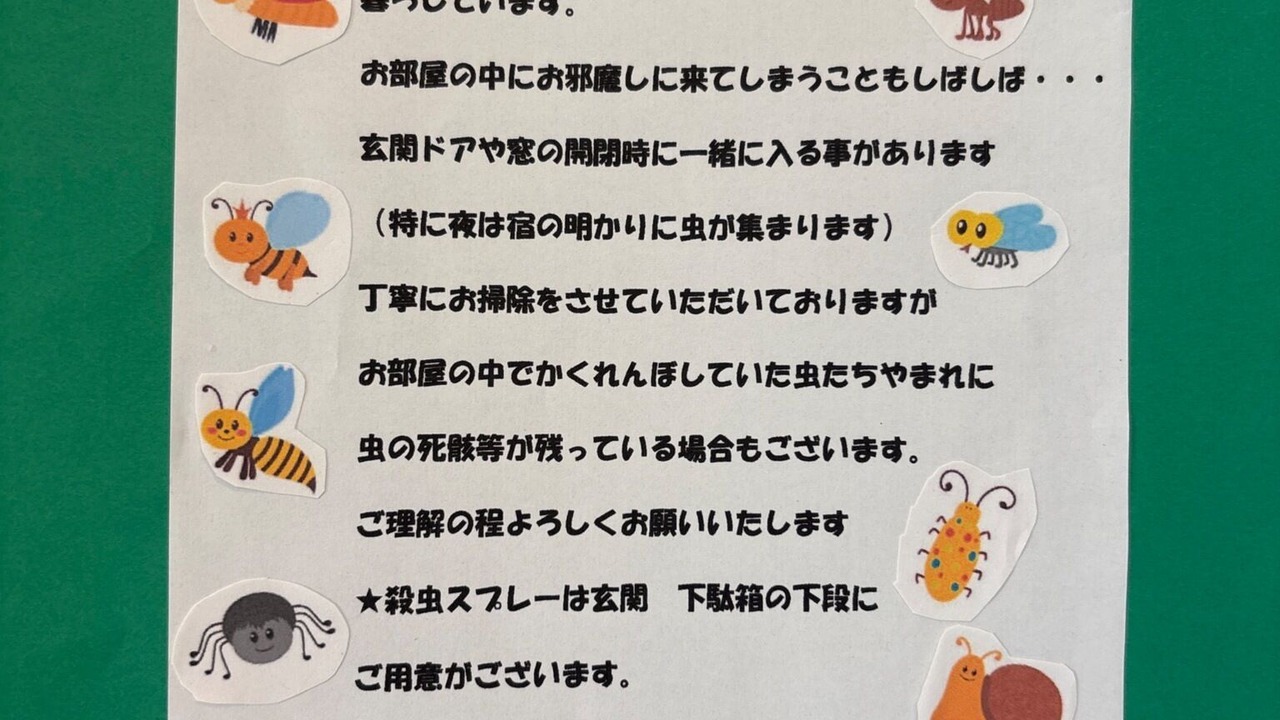 暮らしています。
お部屋の中にお邪魔しに来てしまうこともしばしば・・・
玄関ドアや窓の開閉時に一緒に入る事があります
（特に夜は宿の明かりに虫が集まります）
丁寧にお掃除をさせていただいておりますが
お部屋の中でかくれんぼしていた虫たちやまれに
虫の死骸等が残っている場合もございます。
ご理解の程よろしくお願いいたします
★殺虫スプレーは玄関　下駄箱の下段に
ご用意がございます。